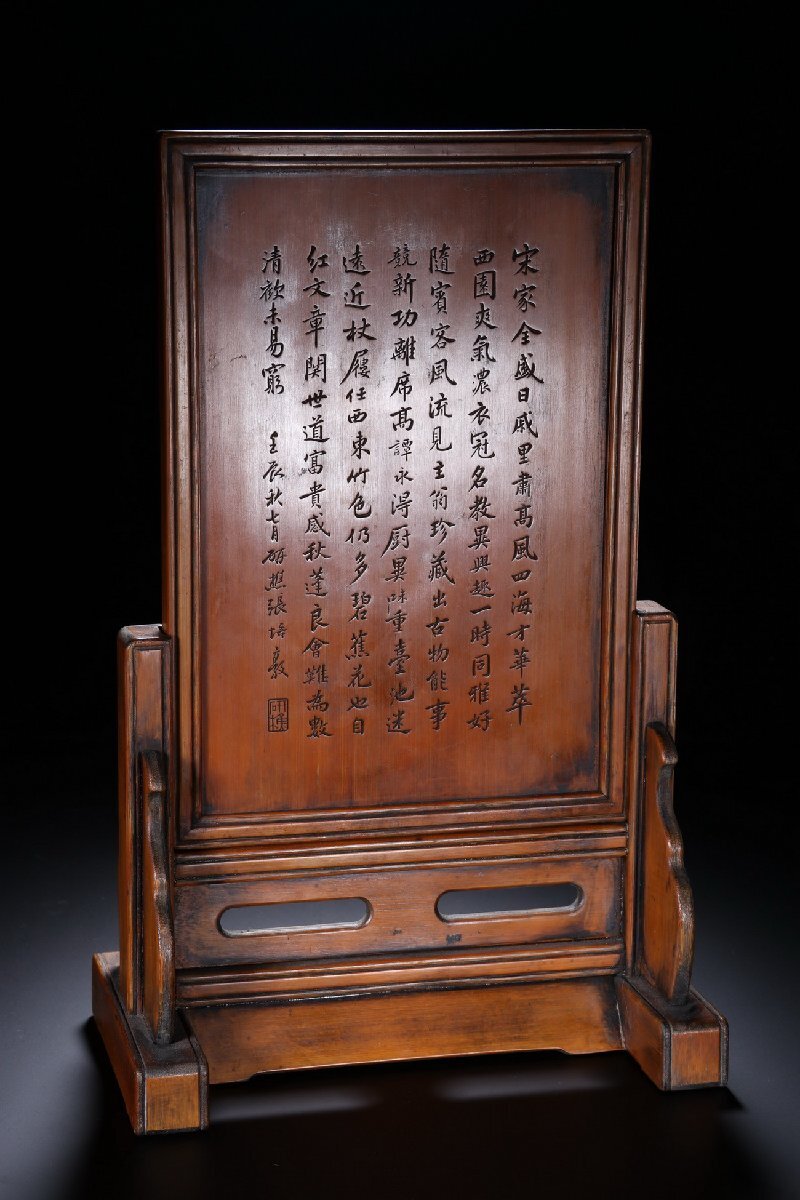 宋家全盛日戚里肅高風四海才華萃
西園爽氣濃衣冠名教異興趣一時同雅好
隨賓客風流見主翁珍藏出古物能事
競新功離席高譚永得厨異味重臺池迷
遠近杖屨任西東竹色仍多碧蕉花也自
紅文章関世道富貴感秋蓬良會難為數
清歡未易窮
壬辰秋七月研樵張培敦
研樵